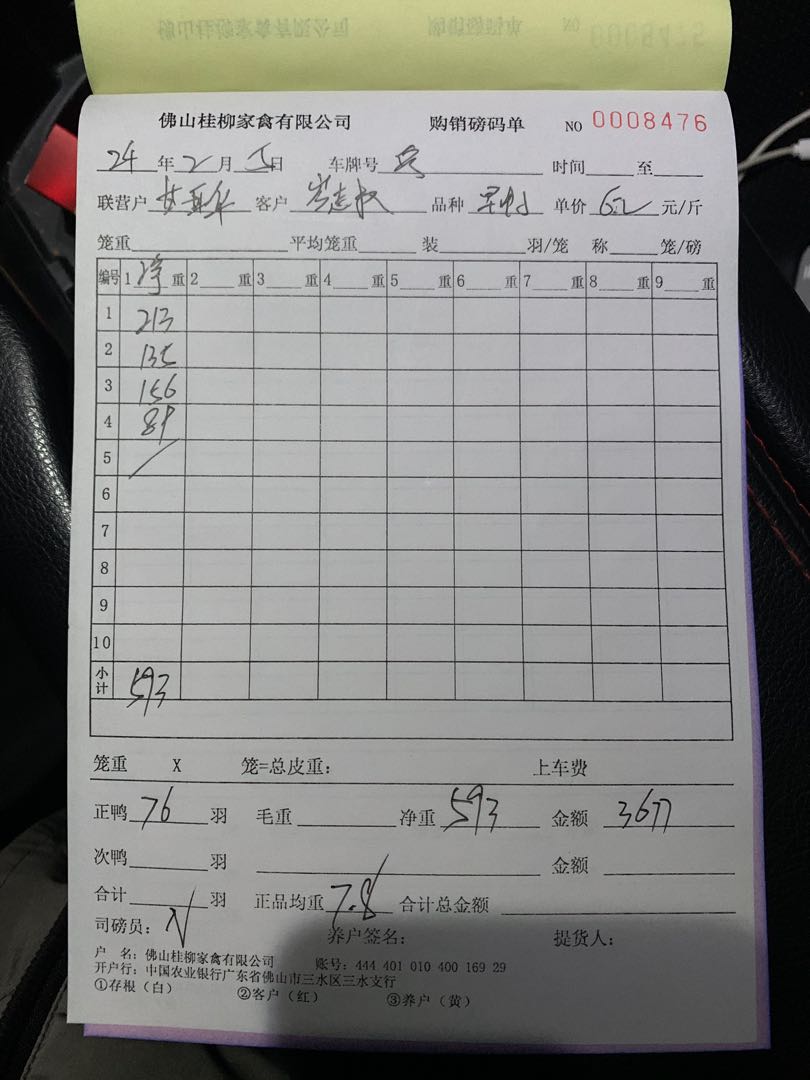 佛山桂柳家禽有限公司 购销磅码单 NO 0008476
24年2月5日 车牌号 时间 至
联营户 客户 岑志权 品种 单价 6.2 元/斤
笼重 平均笼重 装 羽/笼 称 笼/磅
编号 1 净 重 2 重 3 重 4 重 5 重 6 重 7 重 8 重 9 重
1 213
2 135
3 156
4 89
5
6
7
8
9
10
小计 593
笼重 X 笼=总皮重: 上车费
正鸭 76 羽 毛重 净重 593 金额 3677
次鸭 羽 金额
合计 羽 正品均重 7.8 合计总金额
司磅员: 养户签名: 提货人:
户 名: 佛山桂柳家禽有限公司 账号: 444 401 010 400 169 29
开户行: 中国农业银行广东省佛山市三水区三水支行
①存根(白) ②客户(红) ③养户(黄)